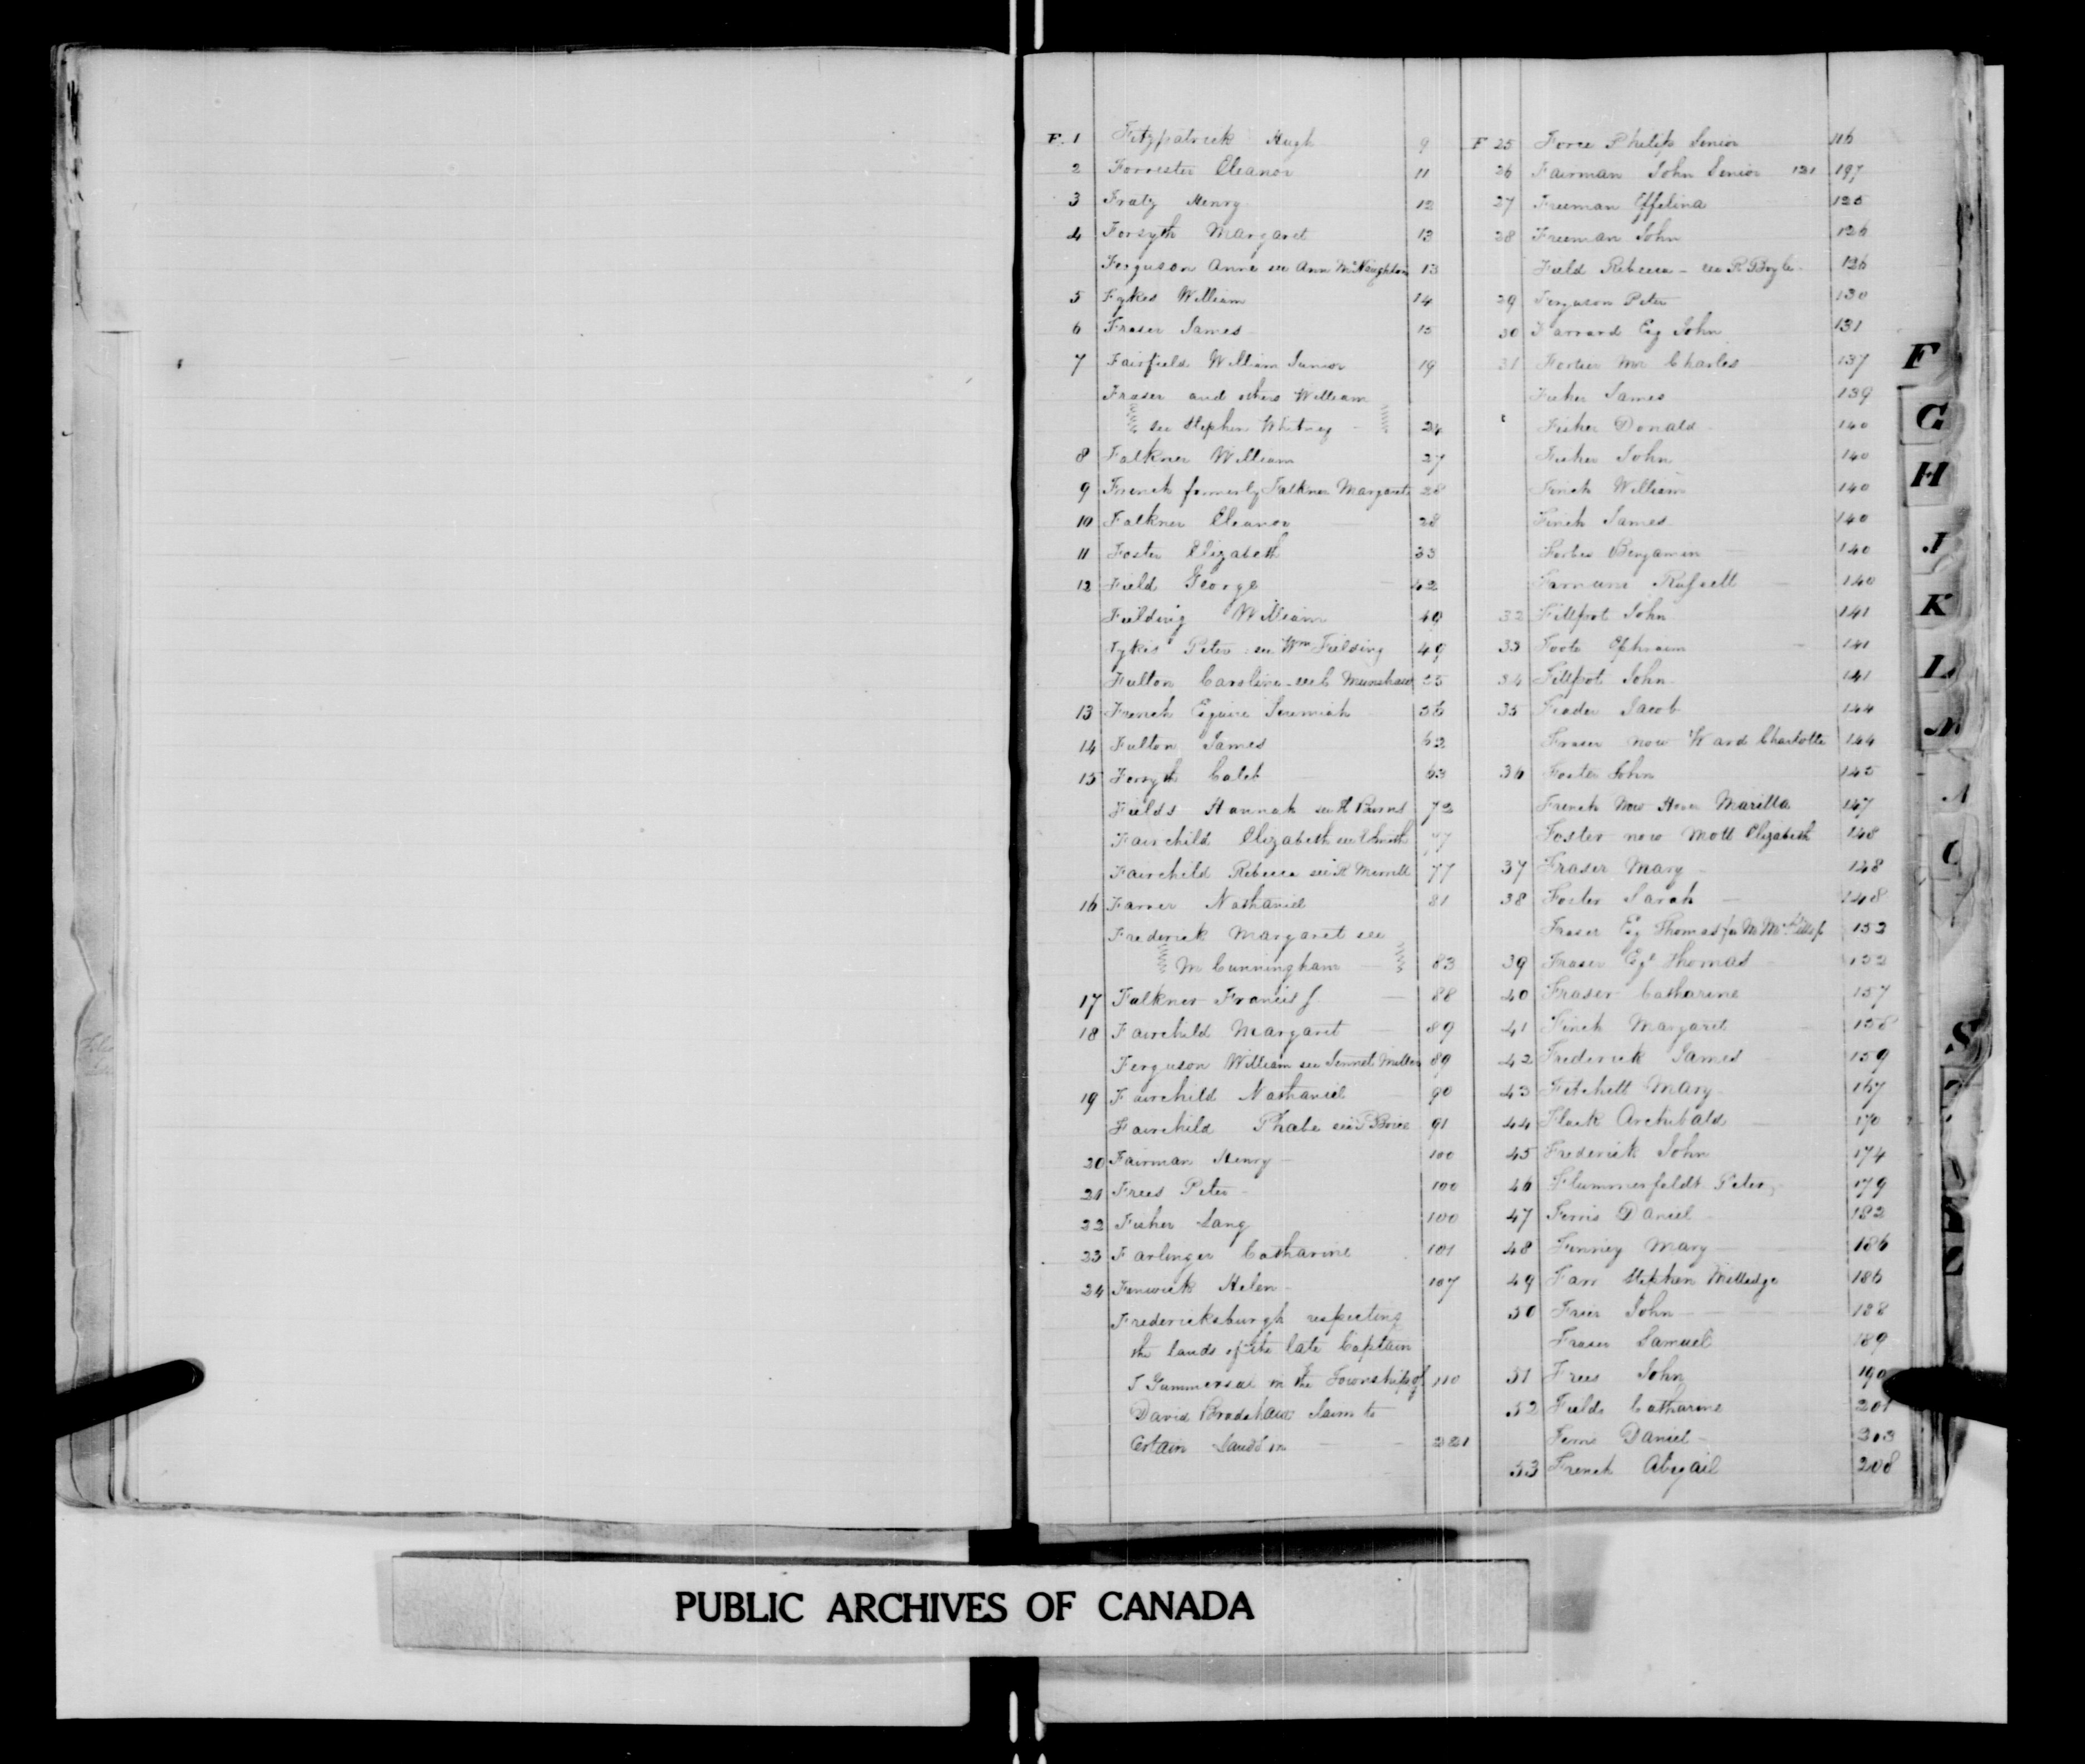 F. 1 Fitzpatrick Hugh 9
2 Forrester Eleanor 11
3 Fratz Henry 12
4 Forsyth Margaret 13
Ferguson Anne see Ann McNaughton 13
5 Fykes William 14
6 Fraser James 15
7 Fairfield William Junior 19
Fraser and others William
see Stephen Whitney 24
8 Falkner William 27
9 French formerly Falkner Margaret 28
10 Falkner Eleanor 28
11 Foster Elizabeth 33
12 Field George 42
Fielding William 49
Fykes Peter see Wm Fielding 49
Fulton Caroline see C Munshaw 55
13 French Esquire Jeremiah 56
14 Fulton James 62
15 Forsyth Caleb 63
Fields Hannah see H Burns 72
Fairchild Elizabeth see E Smith 77
Fairchild Rebecca see R Merrill 77
16 Farver Nathaniel 81
Frederick Margaret see
M Cunningham 83
17 Falkner Francis J. 88
18 Fairchild Margaret 89
Ferguson William see Jennet Miller 89
19 Fairchild Nathaniel 90
Fairchild Phœbe see P Brice 91
20 Fairman Henry 100
21 Frees Peter 100
22 Fisher Lang 100
23 Farlinger Catharine 101
24 Fenwick Helen 107
Fredericksburgh respecting
the lands of the late Captain
T Gummersal in the Township of 110
David Bradshaw Claim to
Certain Lands in 221
F 25 Force Philip Senior 116
26 Fairman John Senior 121 197
27 Freeman Effelina 125
28 Freeman John 126
Field Rebecca see R Boyle 126
29 Ferguson Peter 130
30 Farrard Esq John 131
31 Fortier Mr Charles 137
Fisher James 139
Fisher Donald 140
Fisher John 140
Finch William 140
Finch James 140
Forbes Benjamin 140
Farnums Russell 140
32 Fillpot John 141
33 Foote Ephraim 141
34 Fillpot John 141
35 Frader Jacob 144
Fraser now Ward Charlotte 144
36 Foster John 145
French now Hover Marilla 147
Foster now Mott Elizabeth 148
37 Fraser Mary 148
38 Foster Sarah 148
Fraser Esq Thomas for M 152
39 Fraser Esqr Thomas 152
40 Fraser Catharine 157
41 Finch Margaret 158
42 Frederick James 159
43 Fitchett Mary 167
44 Fleck Archibald 170
45 Frederick John 174
46 Flummerfeldt Peter 179
47 Ferris Daniel 182
48 Finney Mary 186
49 Farr Stephen Milledge 186
50 Freer John 188
Fraser Samuel 189
51 Frees John 190
52 Fields Catharine 201
Ferris Daniel 203
53 French Abigail 208
F
G
H
J
K
L
M
S
PUBLIC ARCHIVES OF CANADA